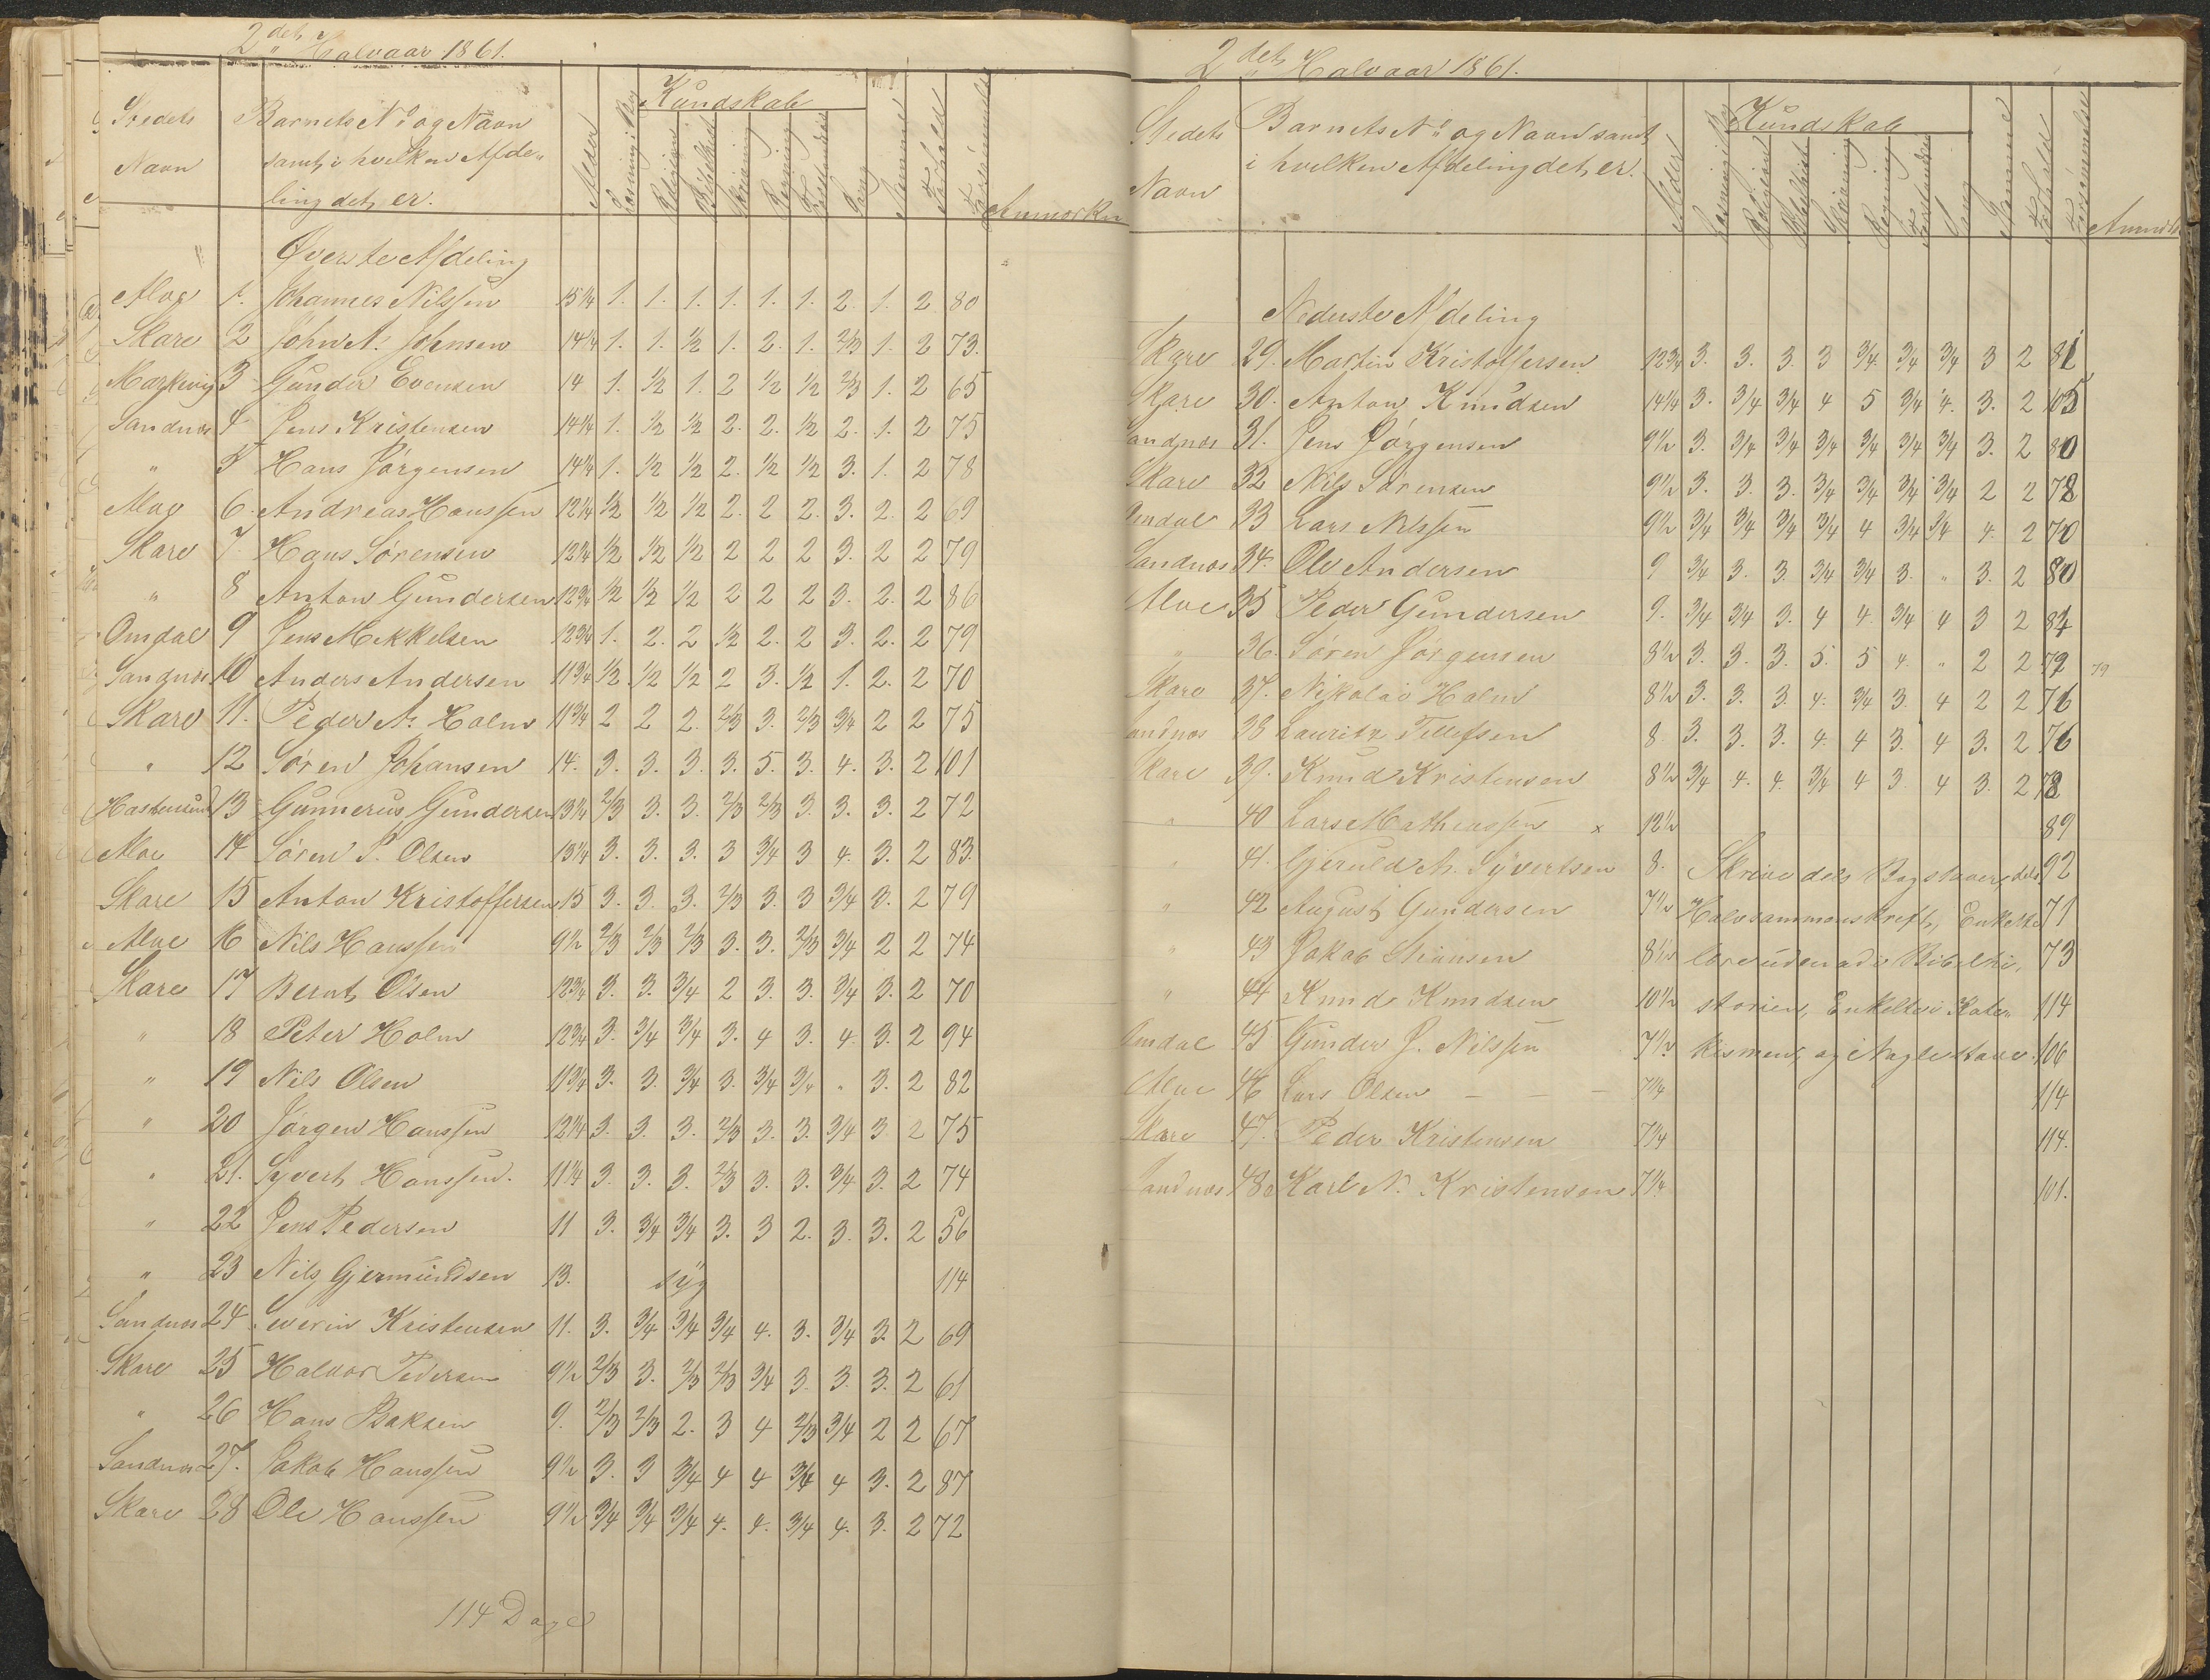 2det Halvaar 1861.
Stedets Barnets No og Navn Alder Læsning i Bog Kundskab Evne Nemme Forhold Forsømmelse
Navn samt i hvilken Afde- Religion Bibelhist Skrivning Regning Anmærkn
ling det er.
Øverste Afdeling
Aloe 1. Johannes Nilssen 15 1/4 1. 1. 1. 1. 1. 1. 2. 1. 2 80
Skare 2 John A. Johnsen 14 1/4 1. 1. 1/2 1. 2. 1. 2/3 1. 2 73.
3 Gunder Evensen 14 1. 1/2 1. 2 1/2 1/2 2/3 1. 2 65
Sandnæs 4 Jens Kristensen 14 1/4 1. 1/2 1/2 2. 2. 1/2 2. 1. 2 75
" 5 Hans Jørgensen 14 1/4 1. 1/2 1/2 2. 1/2 1/2 3. 1. 2 78
Aloe 6. Andreas Hanssen 12 1/4 1/2 1/2 1/2 2. 2 2. 3. 2. 2 69
Skare 7. Hans Sørensen 12 3/4 1/2 1/2 1/2 2 2 2 3. 2 2 79
" 8 Anton Gundersen 12 3/4 1/2 1/2 1/2 2 2 2 3. 2. 2 86
Omdal 9 Jens Mikkelsen 12 3/4 1. 2. 2 1/2 2. 2 3. 2. 2 79
Sandnæs 10 Anders Andersen 11 3/4 1/2 1/2 1/2 2 3. 1/2 1. 2. 2 70
Skare 11. Peder A. Holm 11 3/4 2 2 2. 2/3 3. 2/3 3/4 2 2 75
" 12 Søren Johansen 14. 3. 3. 3. 3. 5. 3. 4. 3. 2 101
13 Gunnerus Gundersen 13 1/4 2/3 3. 3. 2/3 2/3 3. 3. 3. 2 72
Aloe 14 Søren P. Olsen 13 1/4 3. 3. 3. 3 3/4 3 4. 3. 2 83.
Skare 15 Anton Kristoffersen 15 3. 3. 3. 2/3 3. 3 3/4 3. 2 79
Aloe 16 Nils Hanssen 9 1/2 2/3 2/3 2/3 3. 3. 2/3 3/4 2 2 74
Skare 17 Bernt Olsen 12 3/4 3. 3. 3/4 2 3. 3. 3/4 3. 2 70
" 18 Peter Holm 12 3/4 3. 3/4 3/4 3. 4 3. 4. 3. 2 94
" 19 Nils Olsen 11 3/4 3. 3. 3/4 3. 3/4 3/4 " 3. 2 82
" 20 Jørgen Hanssen 12 1/4 3. 3. 3. 2/3 3. 3. 3/4 3 2 75
" 21. Syvert Hanssen. 11 1/4 3. 3. 3. 2/3 3. 3. 3/4 3. 2 74
" 22 Jens Pedersen 11 3. 3/4 3/4 3. 3 2. 3. 3. 2 56
" 23 Nils Gjermundsen 13. syg 114
Sandnæs 24 Severin Kristensen 11. 3. 3/4 3/4 3/4 4. 3. 3/4 3. 2 69
Skare 25 Halvor Pedersen 9 1/2 2/3 3. 2/3 2/3 3/4 3. 3. 3. 2 61
" 26 Hans Baksen 9. 2/3 2/3 2. 3 4 2/3 3/4 2 2 67
Sandnæs 27. Jakob Hanssen 9 1/2 3. 3 3/4 4 4 3/4 4 3. 2 87
Skare 28 Ole Hanssen 9 1/2 3/4 3/4 3/4 4. 4. 3/4 4. 3. 2 72
114 Dage
2det Halvaar 1861.
Stedets Barnets No og Navn samt Alder Læsning i Bog Kundskab Nemme Forhold Forsømmelse
Navn i hvilken Afdeling det er. Religion Bibelhist Skrivning Regning
Nederste Afdeling
Skare 29. Martin Kristoffersen 12 3/4 3. 3. 3. 3 3/4 3/4 3/4 3 2 81
Skare 30. Anton Knudsen 14 1/4 3. 3/4 3/4 4 5 3/4 4. 3. 2 105
Sandnæs 31. Jens Jørgensen 9 1/2 3. 3/4 3/4 3/4 3/4 3/4 3/4 3. 2 80
Skare 32 Nils Sørensen 9 1/2 3. 3. 3. 3/4 3/4 3/4 3/4 2 2 78
Omdal 33 Lars Nilssen 9 1/2 3/4 3/4 3/4 3/4 4 3/4 3/4 4. 2 70
Sandnæs 34. Ole Andersen 9 3/4 3. 3. 3/4 3/4 3. " 3. 2 80
Aloe 35 Peder Gundersen 9. 3/4 3/4 3. 4 4. 3/4 4 3 2 84
" 36. Søren Jørgensen 8 1/2 3. 3. 3. 5. 5 4. " 2 2 79 79
Skare 37. Nikolai Holm 8 1/2 3. 3. 3. 4. 3/4 3. 4 2 2 76
Sandnæs 38 Lauritz Tellefsen 8. 3. 3. 3. 4. 4 3. 4 3. 2 76
Skare 39. Knud Kristensen 8 1/2 3/4 4. 4. 3/4 4 3 4 3. 2 78
" 40 Lars Mathiassen x 12 1/2 89
" 41. Gjeruld A. Syvertsen 8. Skrive dels Bogstaver, dels 92
" 42 August Gundersen 7 1/2 Halvsammenskrift, Enkelte 71
" 43 Jakob 8 1/2 lære udenad i Bibelhi- 73
" 44 Knud Knudsen 10 1/2 storien, Enkelte i Kate- 114
Omdal 45 Gunder J. Nilssen 7 1/2 kismen, og i 106
Aloe 46 Lars Olsen – – – 7 1/4 114
Skare 47. Peder Kristensen 7 1/4 114.
Sandnæs 48. Karl N. Kristensen 7 1/4 101.